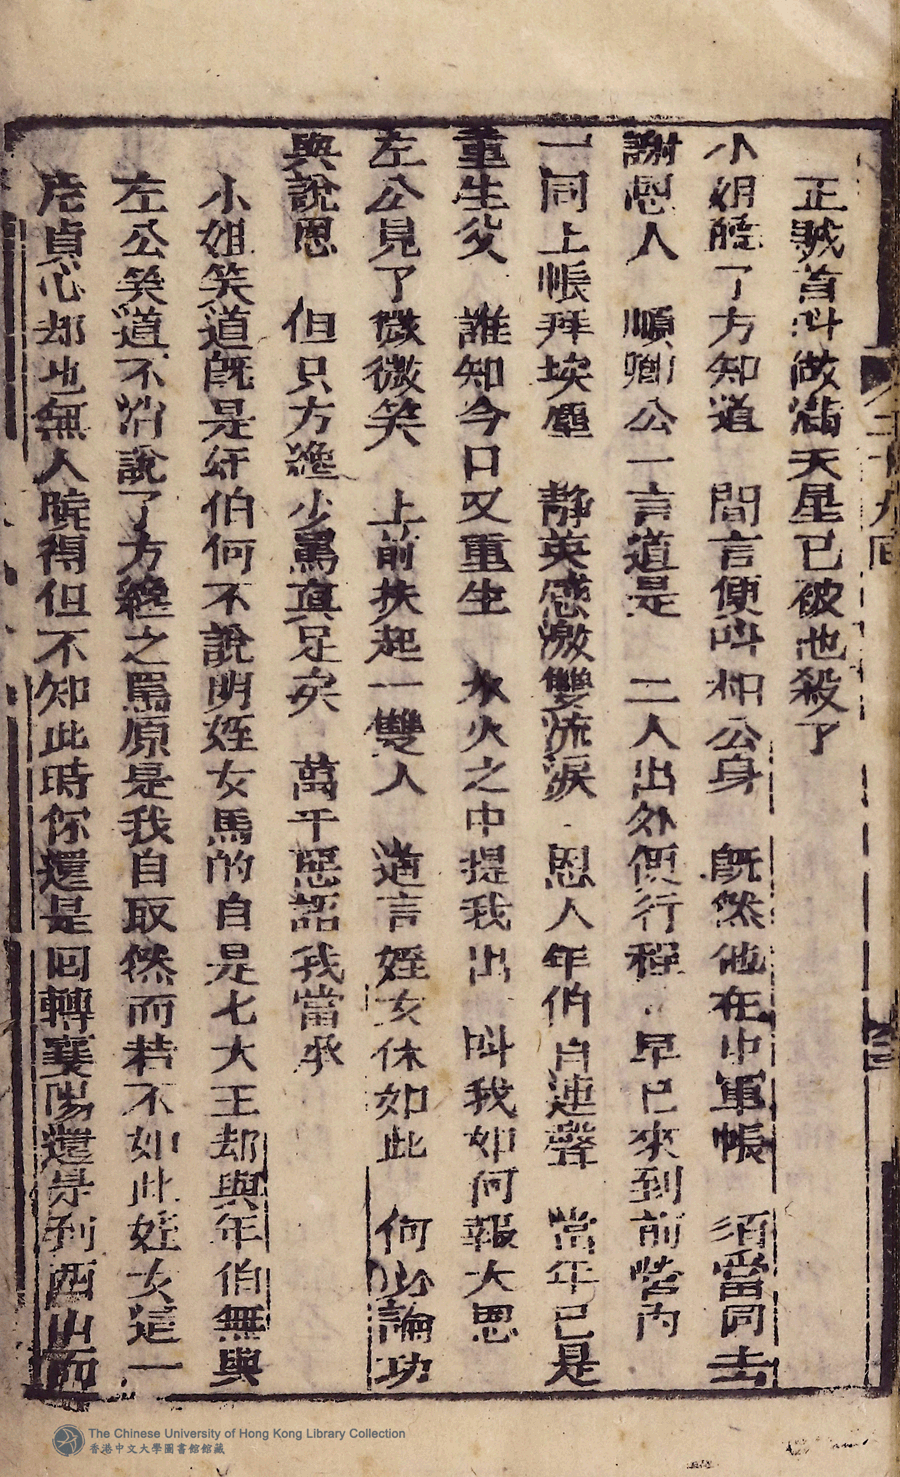 正賊首叫做滿天星已被他殺了
小姐聽了方知道 間言便叫相公身 既然他在中軍帳 須當同去
謝恩人 順卿公一言道是 二人出外便行程 早已來到前營內
一同上帳拜埃塵 靜英感激雙流淚 恩人年伯自連聲 當年已是
重生父 誰知今日又重生 水火之中提我出 叫我如何報大恩
左公見了微微笑 上前扶起一雙人 道言姪女休如此 何必論功
與說恩 但只方纔少罵真足矣 萬千惡語我當承
小姐笑道既是奸伯何不說明姪女馬的自是七大王却與年伯無與
左公笑道不消說了方纔之罵原是我自取然而若不如此姪女這一
片貞心却也無人曉得但不知此時你還是回轉襄陽還是到西山而
二十九回
The Chinese University of Hong Kong Library Collection
香港中文大學圖書館館藏